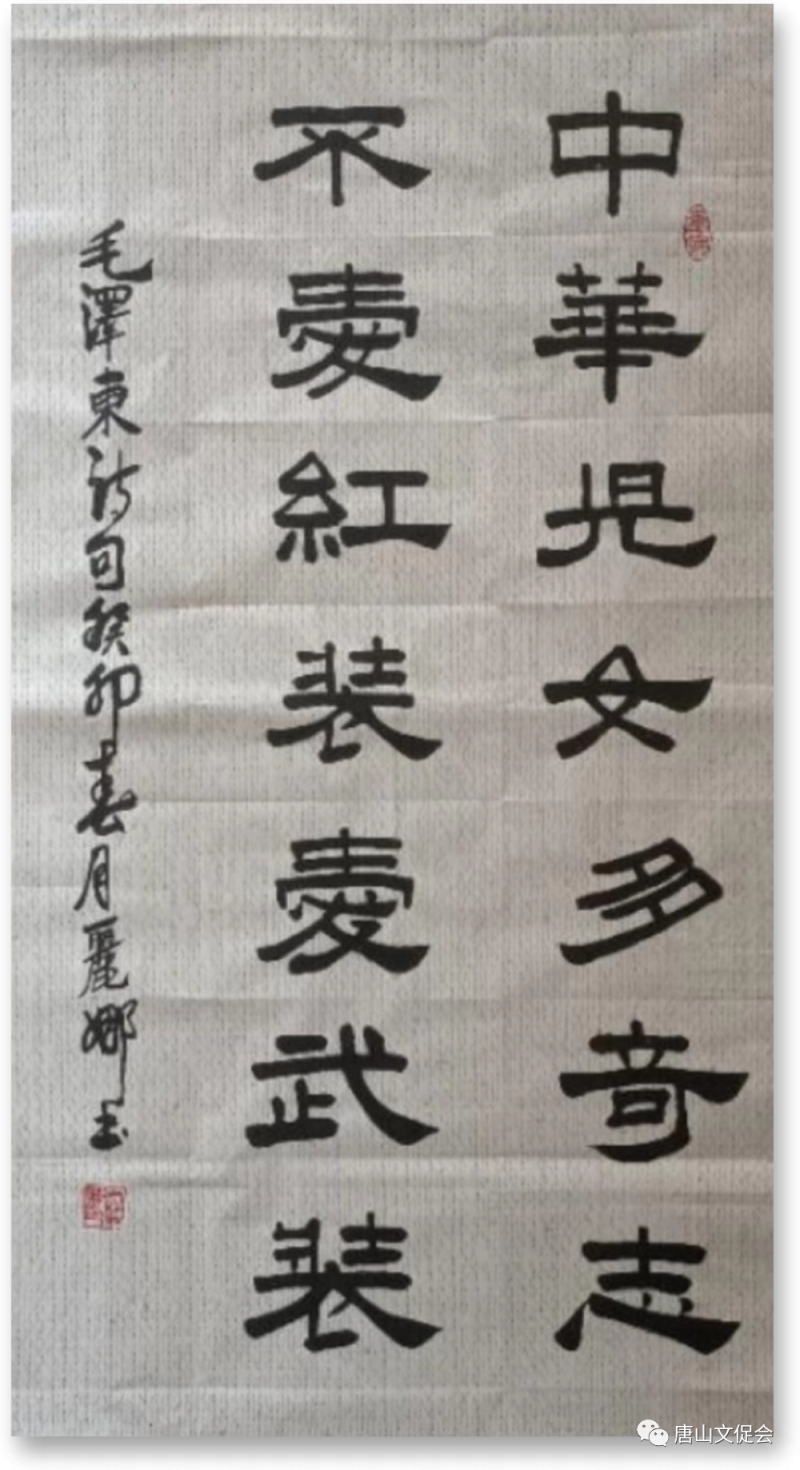 中華兒女多奇志
不愛紅裝愛武裝
毛澤東詩句癸卯春月麗娜书
唐山文促会